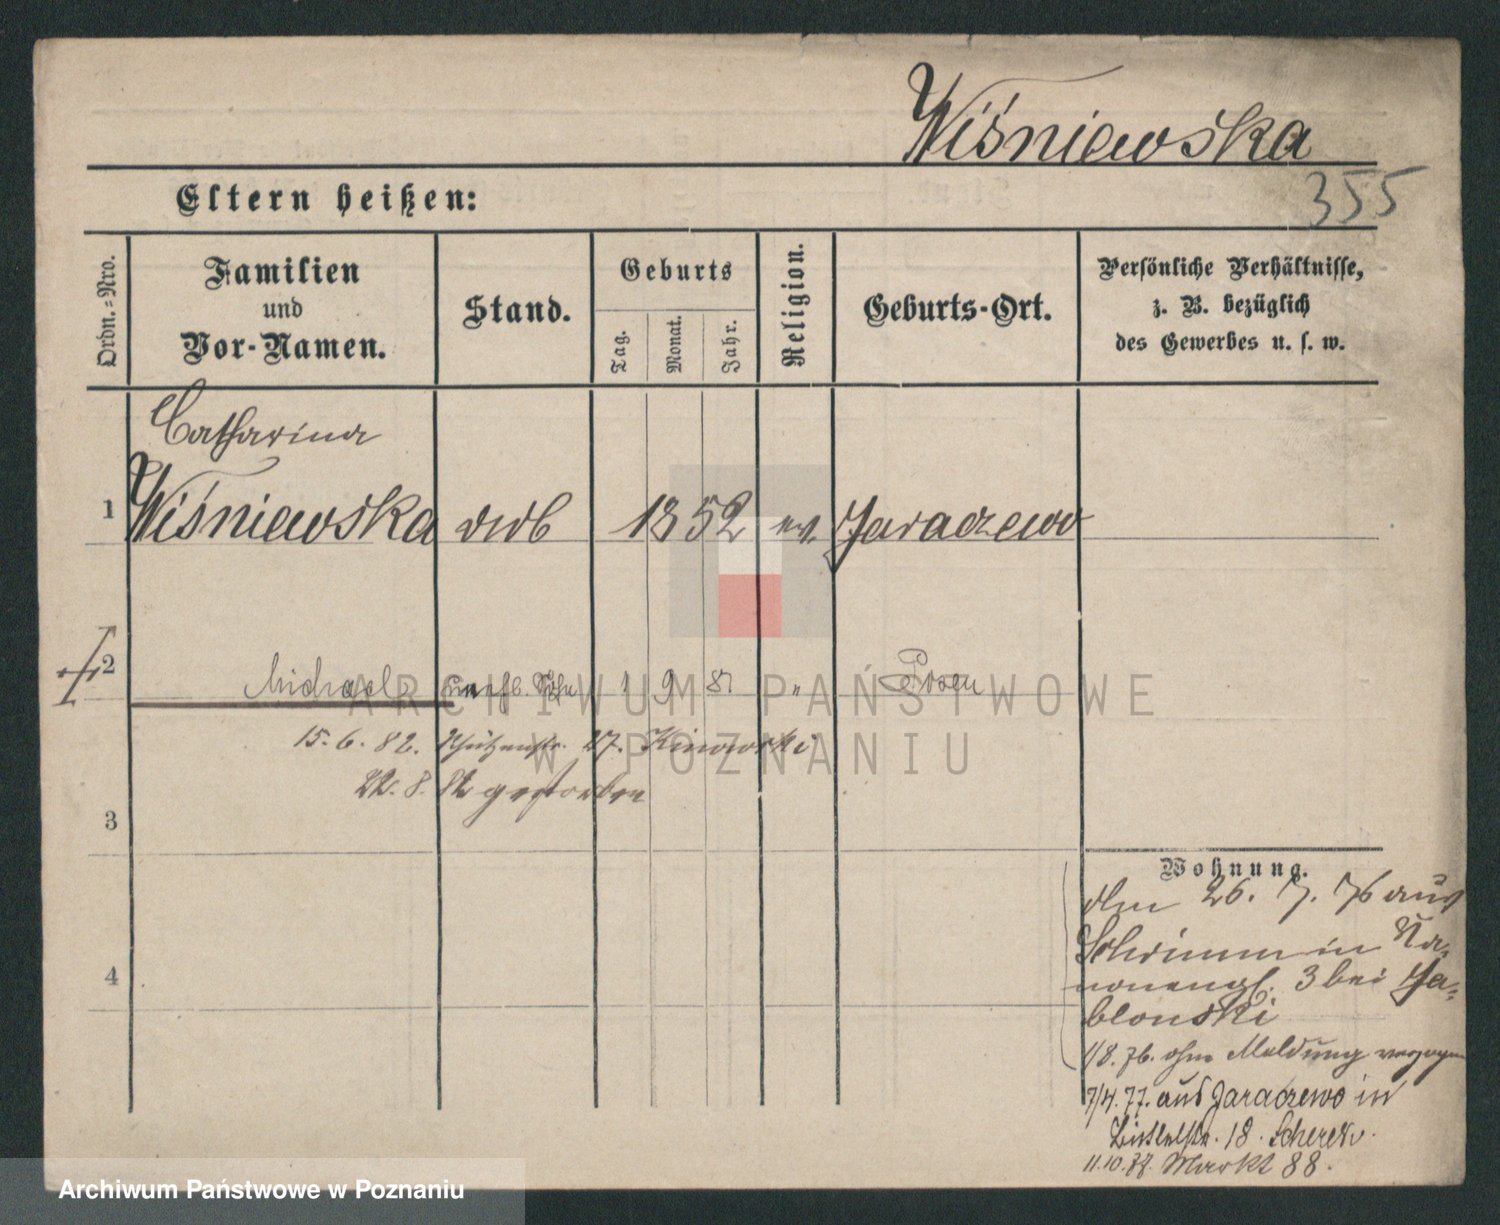 Wiśniewska
355
Eltern heißen:
Ordn.-Nro.
Familien
und
Vor-Namen.
Stand.
Geburts
Tag.
Monat.
Jahr.
Religion.
Geburts-Ort.
Persönliche Verhältnisse,
z. B. bezüglich
des Gewerbes u. s. w.
Catharina
1 Wiśniewska 1852 Jaraczewo
2 Michael 1 9 81 " Posen
15. 6. 82. Schützenstr. 27.
22. 8. 82 gestorben
3
4
Wohnung.
den 26. 7. 76 aus
Schrimm in
3 bei Ja-
blonski
1/8. 76. ohne Meldung verzogen
7/4. 77. aus Jaraczewo in
18.
11.10.77. Markt 88.
ARCHIWUM PAŃSTWOWE
W POZNANIU
Archiwum Państwowe w Poznaniu